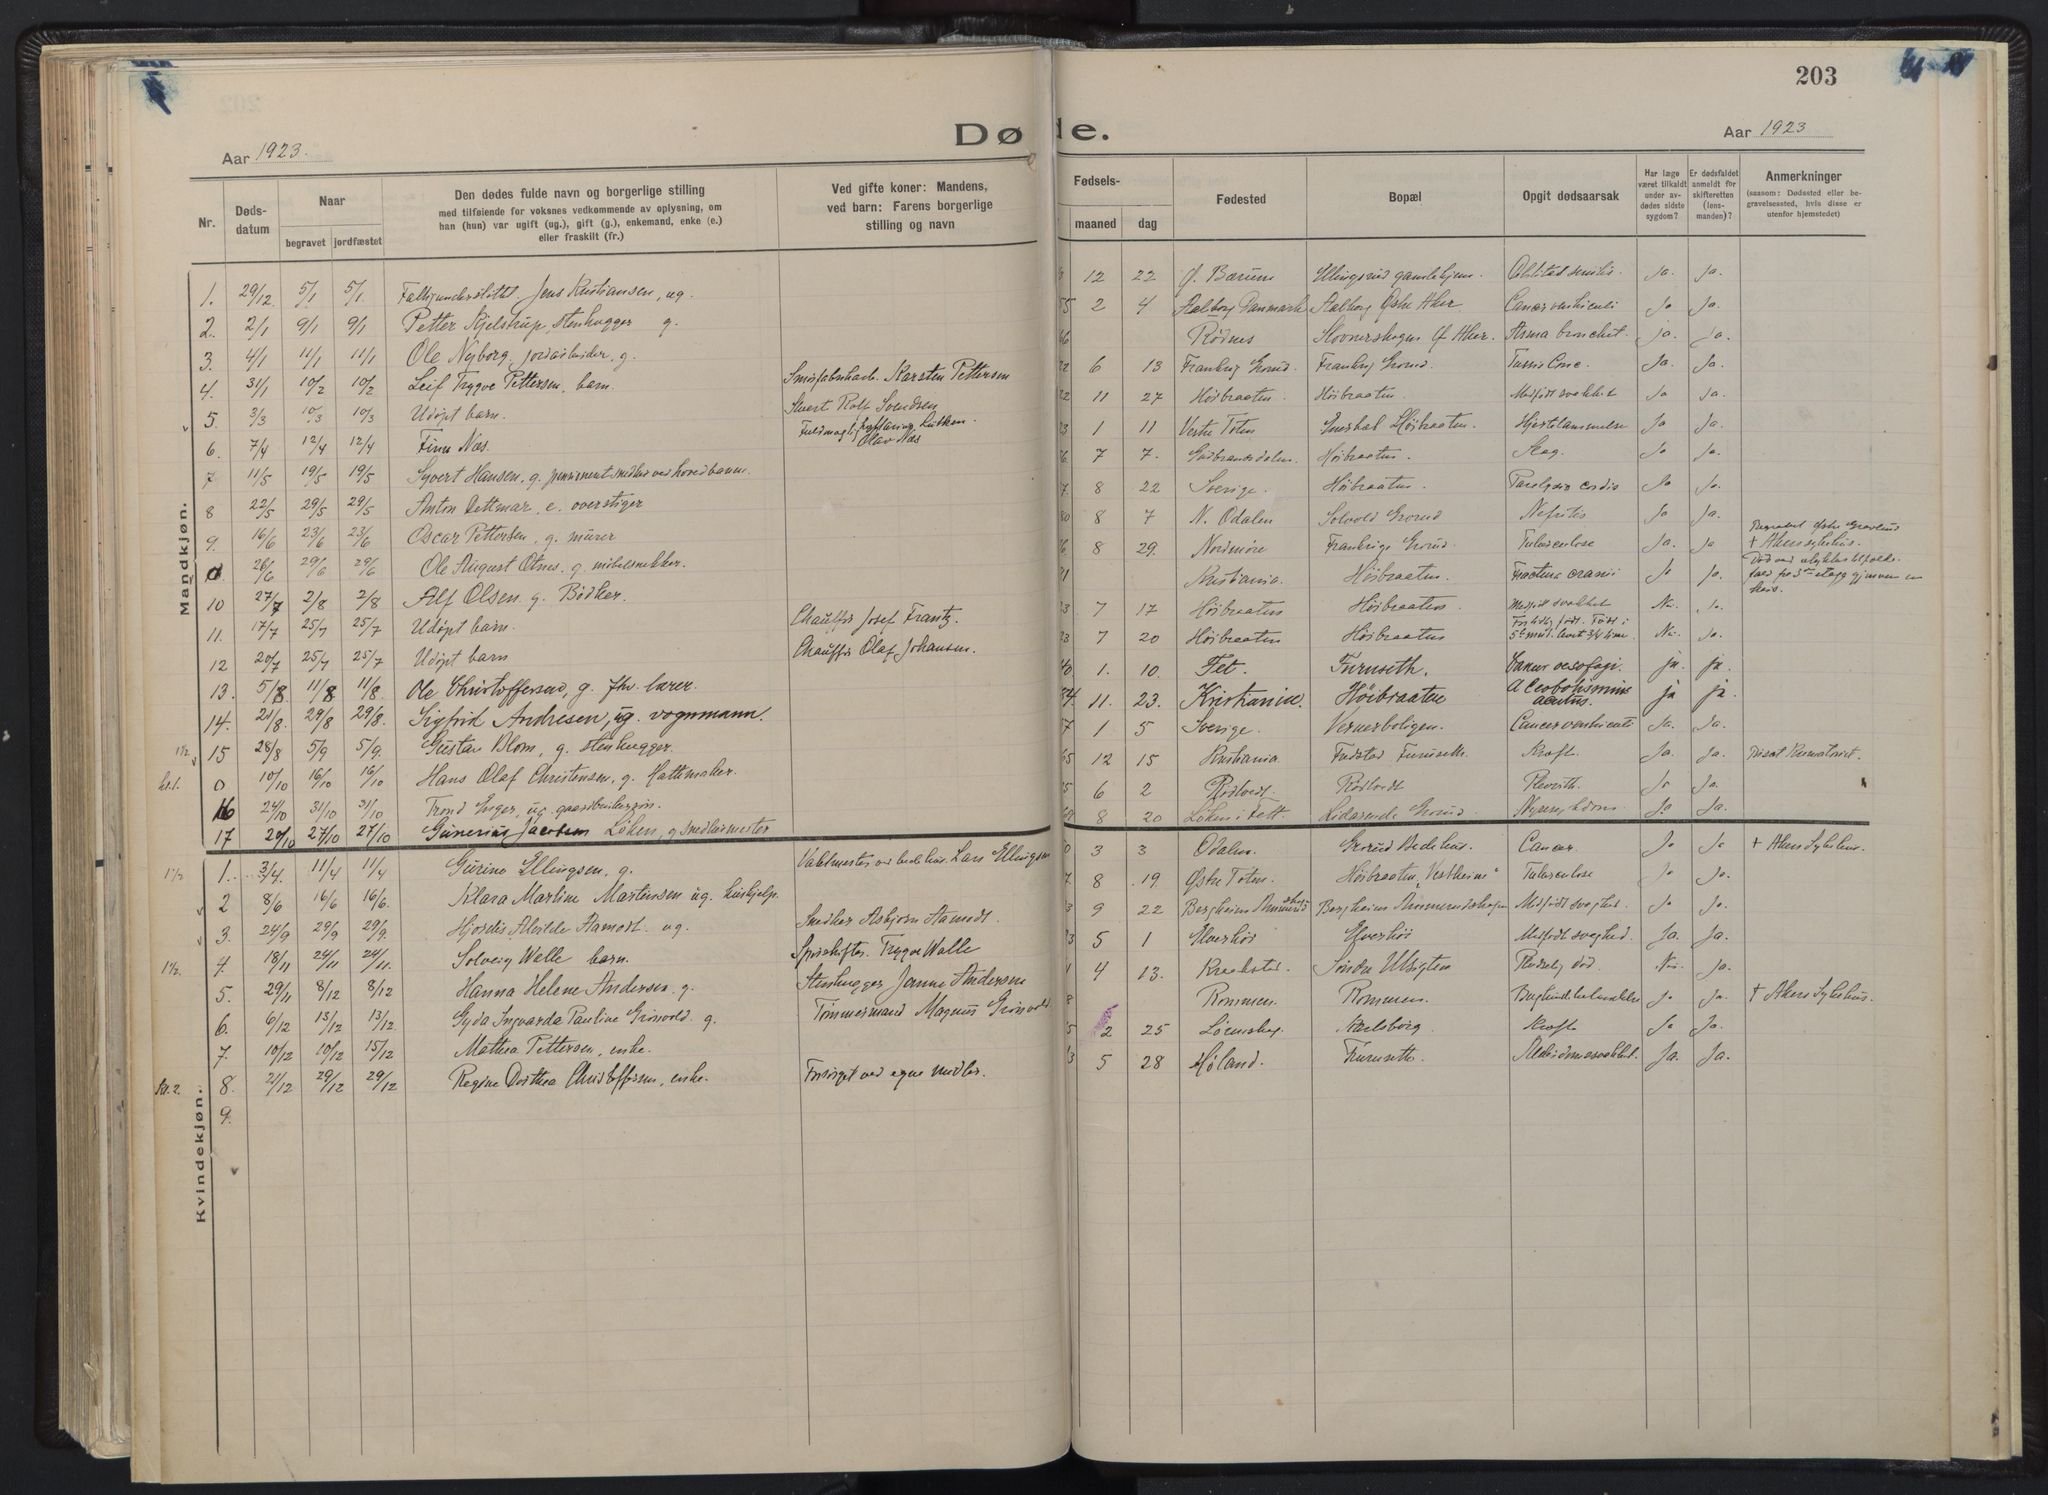 203
Døde.
Aar 1923.
Aar 1923
Nr.
Døds-
datum
Naar
begravet
jordfæstet
Den dødes fulde navn og borgerlige stilling
med tilføiende for voksnes vedkommende av oplysning, om
han (hun) var ugift (ug.), gift (g.), enkemand, enke (e.)
eller fraskilt (fr.)
Ved gifte koner: Mandens,
ved barn: Farens borgerlige
stilling og navn
Fødsels-
maaned
dag
Fødested
Bopæl
Opgit dødsaarsak
Har læge
været tilkaldt
under av-
dødes sidste
sygdom?
Er dødsfaldet
anmeldt for
skifteretten
(lens-
manden)?
Anmerkninger
(saasom: Dødssted eller be-
gravelsessted, hvis disse er
utenfor hjemstedet)
Mandkjøn.
1. 29/12 5/1 5/1 Jens Kristiansen, ug. 12 22 Ø. Bærum Ellingsrud gamlehjem. Ja. Ja.
2. 2/1 9/1 9/1 Petter Kjelstrup, stenhugger g. 55 2 4 Aalborg Danmark Aalborg Østre Aker Cancer ventriculi Ja Ja.
3. 4/1 11/1 11/1 Ole Nyborg, jordarbeider, g. 66 Rødnes Ø Aker. Asma bronchit. Ja. Ja.
4. 31/1 10/2 10/2 Leif Trygve Pettersen, barn. Karsten Pettersen 22 6 13 Grorud. Grorud. Ja. Ja.
5. 3/3 10/3 10/3 Udøpt barn. Rolf Svendsen 22 11 27 Høibraaten. Høibraaten. Medfødt svakhet Ja Ja.
6. 7/4 12/4 12/4 Finn Næs. Olav Næs 23 1 11 Vestre Toten Høibraaten. Ja Ja.
7 11/5 19/5 19/5 Syvert Hansen, g. 7 7. Gudbrandsdalen. Høibraaten. Slag. Ja Ja.
8 22/5 29/5 29/5 Anton Dettmar, e. overstiger 7. 8 22 Sverige. Høibraaten. Paralysis cordis Ja Ja.
9. 16/6 23/6 23/6 Oscar Pettersen, g. murer 80 8 7 N. Odalen Solvold Grorud Nefritis Ja Ja.
0 26/6 29/6 29/6 Ole August Otnes. g. møbelsnekker. 8 29. Nordmøre Grorud. Tuberculose Ja. Ja Begravet Østre Gravlund
+ Akers sykehus.
10 27/7 2/8 2/8 Alf Olsen. g. Bødker. 21 Kristiania. Høibraaten. Fractura cranii Ja Ja. Død ved ulykkestilfælde.
11. 17/7 25/7 25/7 Udøpt barn. Chauffør Josef Frantz. 23 7 17 Høibraaten Høibraaten. Medfødt svakhet Nei. Ja.
12 20/7 25/7 25/7 Udøpt barn Chauffør Olaf Johansen. 23 7 20 Høibraaten Høibraaten Nei. Ja.
13. 5/8 11/8 11/8. Ole Christoffersen, g. fhv. lærer. 40 1. 10. Fet. Furuseth. Cancer oesofagi. ja. ja.
14. 21/8. 29/8 29/8. Sigfrid Andresen, ug. vognmann. 84 11. 23. Kristiania. Høibraaten acutus. ja ja.
15 28/8 5/9 5/9. Gustav Blom, g. stenhugger. 7 1 5 Sverige. Vernerboligen. Cancer ventriculi Ja. Ja.
0 10/10 16/10 16/10 Hans Olaf Christensen, g. Hattemaker. 65 12 15 Kristiania Furuseth. Kræft. Ja. Ja.
16 24/10 31/10 31/10 Trond Enger, ug. 5 6 2 Rødtvedt. Rødtvedt Plevrith. Ja Ja.
17 20/10 27/10 27/10 Gunerius Jacobsen Løken, g snedkermester 8 20 Løken i Fett. Grorud. Ja Ja.
Kvindekjøn.
1. 3/4. 11/4 11/4 Gurine Ellingsen, g. Lars Ellingsen 0 3 3 Odalen. Grorud Bedehus. Cancer. Ja Ja + Akers Sykehus.
2 8/6 16/6 16/6. Klara Martine Martinsen ug. hushjelp. 7. 8 19. Østre Toten. Høibraaten "Vestheim" Tuberculose Ja Ja.
3. 24/9 29/9 29/9. Hjordis Alvilde Aamodt. ug. Snedker Asbjørn Aamodt. 3 9 22 Bergheim Ammerud Bergheim Ammerudskogen Medfødt svaghet. Ja Ja.
4. 18/11 24/11 24/11. Solveig Walle barn. Trygve Walle 23 5 1 Elverhøi Elverhøi Medfødt svaghed. Ja. Ja.
5. 29/11 8/12 8/12 Hanna Helene Andersen. g. Stenhugger Andersen 1 4 13. Kraakstad. Søndre Ulsigten Nei. Ja.
6. 6/12 13/12 13/12. Gyda Ingvarda Pauline Grønvold. g. Tømmermand Magnus Grønvold 8 Rommen. Rommen. Ja Ja. + Akers Sykehus.
7. 10/12 10/12 15/12 Mathea Pettersen, enke. 5 2 25 Lørenskog. Karlsborg. Kræft Ja Ja.
8. 21/12 29/12 29/12 Regine Dorthea Christoffersen, enke. Forsørget ved egne midler. 13 5 28 Høland. Furuseth. Alderdomssvakhet. Ja. Ja.
9.